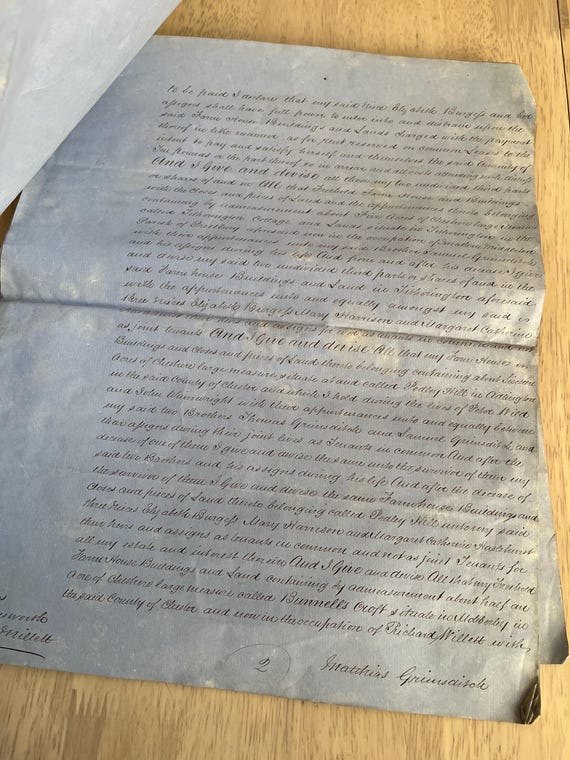 to be paid I declare that my said Niece Elizabeth Burgess and her
assigns shall have full power to enter into and distrain upon the
said Farm House Buildings and Lands charged with the payment
thereof in like manner as for Rent reserved on Common Leases to the
intent to pay and satisfy herself and themselves the said Annuity of
Ten pounds or the part thereof so in arrear and all costs attending such distress
And I Give and devise all those my two undivided third parts
or shares of and in All that Freehold Farm House and Buildings
with the Closes and pieces of Land and the appurtenances thereto belonging
containing by admeasurement about Five Acres of Cheshire large measure
called Titherington Cottage and Lands situate in Titherington in the
Parish of Prestbury aforesaid now in the occupation of Jonathan
with their appurtenances unto my said Brother Samuel Grimsditch
and his assigns during his life And from and after his decease I give
and devise my said two undivided third parts or shares of and in the
said Farm house Buildings and Land in Titherington aforesaid
with the appurtenances unto and equally amongst my said
three Nieces Elizabeth Burgess Mary Harrison and Margaret Catherine
heirs and assigns for as tenants in common and not
as joint tenants And I Give and devise All that my Farm House
Buildings and Closes and pieces of Land thereto belonging containing about Sixteen
Acres of Cheshire large measure situate at and called Pedley Hill in Adlington
in the said County of Chester and which I hold during the lives of Peter Wild
and John Wainwright with their appurtenances unto and equally between
my said two Brothers Thomas Grimsditch and Samuel Grimsditch and
their assigns during their joint lives as Tenants in common And after the
decease of one of them I give and devise the same unto the survivor of them my
said two Brothers and his assigns during his life And after the decease of
the survivor of them I Give and devise the same Farmhouse Buildings and
Closes and pieces of Land thereto belonging called Pedley Hill unto my said
three Nieces Elizabeth Burgess Mary Harrison and Margaret Catherine Haslehurst
their heirs and assigns as tenants in common and not as joint Tenants for
all my estate and interest therein And I Give and devise All that my Freehold
Farm House Buildings and Land containing by admeasurement about half an
Acre of Cheshire large measure called Bunnell's Croft situate in Mobberley in
the said County of Chester and now in the occupation of Richard Willett with
worth
Millett
2
Matthias Grimsditch